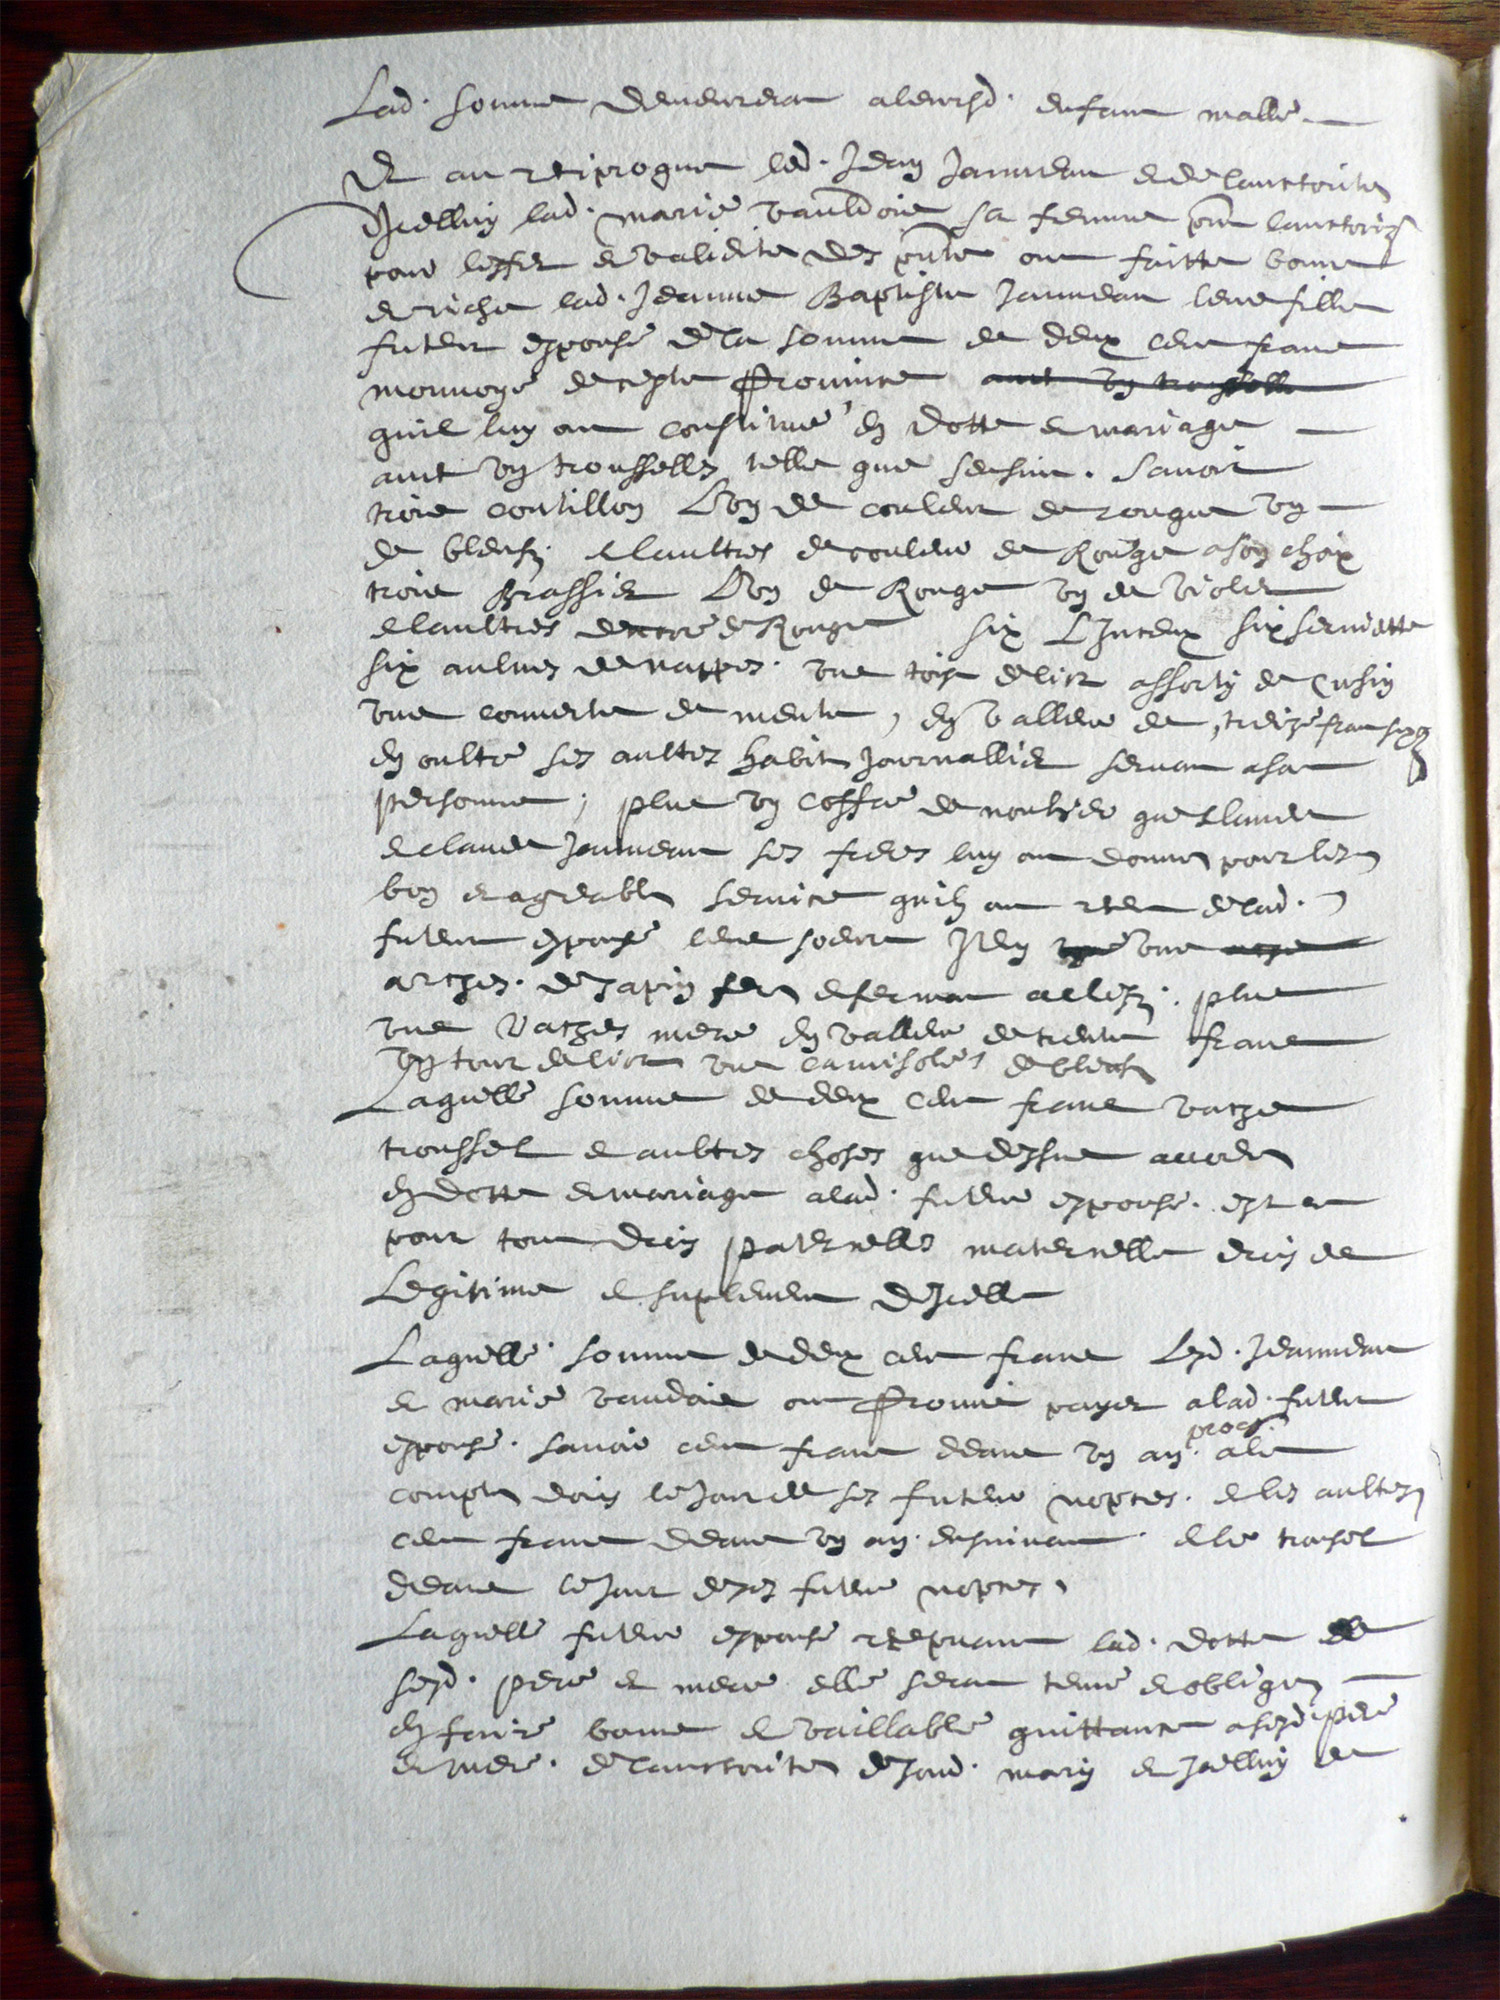 Lad. somme demeurera a leursd. enfans malle
Et au reciproque led. Jean Jannueau et de lauctorite
dicelluy lad. marie vauldoie sa femme pnt lauctoriz
pour leffet et validite des pntes ont faitte bonne
et riche lad. Jeanne Baptiste Jannueau leur fille
future espouse de la somme de deux cent franc
monnoye de ceste province
quil luy ont constitue en dotte et mariage
avec ung troussellz telle que sensuit. Savoir
trois coutillon Lung de couleur de rouge ung
de bleufz. et laultres de couleur de Rouge a son choix
trois Brassier Lung de Rouge ung de violet
et laultres encore de Rouge six Linceux six serviette
six aulnes de nappes. une tois de lict assorty de Cusin
une couverte de mente, en valleur de treize franc
en oultre ses aultes habit journallier servant a sa
personne, plus ung coffre de noutier que
et claude Jannueau ses freres luy ont donne pour les
bon et agreable service quilz ont receu de lad.
future espouse leur soeure Item une
arches. de sapin ferre et fermant a clefz. plus
une vaches mere en valleur de trente franc
ung tour de lict une camisole de bleuf
Laquelle somme de deux cent franc vache
troussel et aultres choses que dessus accorde
en dotte et mariage a lad. future espouse. est ce
pour tout drois paternelle maternelle drois de
Legitime et suplement dicelle
Laquelle somme de deux cent franc Lesd. Jeannueau
et marie vaudoie ont promis payer a lad. future
espouse. savoir cent franc deans ung an. proch
a compte dois le jour de ses future nopces. et les aultes
cent franc deans ung an. ensuivant. et le trosel
deans le jour de ses future nopces.
Laquelle future espouse recepvant lad. dotte de
sesd. pere et mere elle sera tenue et oblige
en faire bonne et vaillable quittance a sesd. pere
et mere. de lauctorite de sond. mary et icelluy de